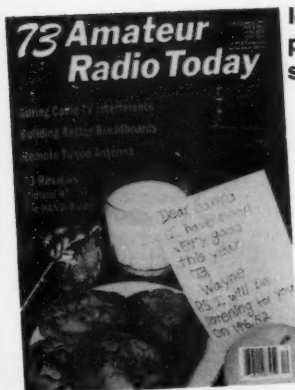 73 Amateur
Radio Today
Curing Cable TV Interference
Building Better Breadboards
Remote Tuned Antenna
73 Reviews
Dear Santa
I have been
very good
this year.
73,
Wayne
PS. I will be
listening for you
on 146.52
p
s